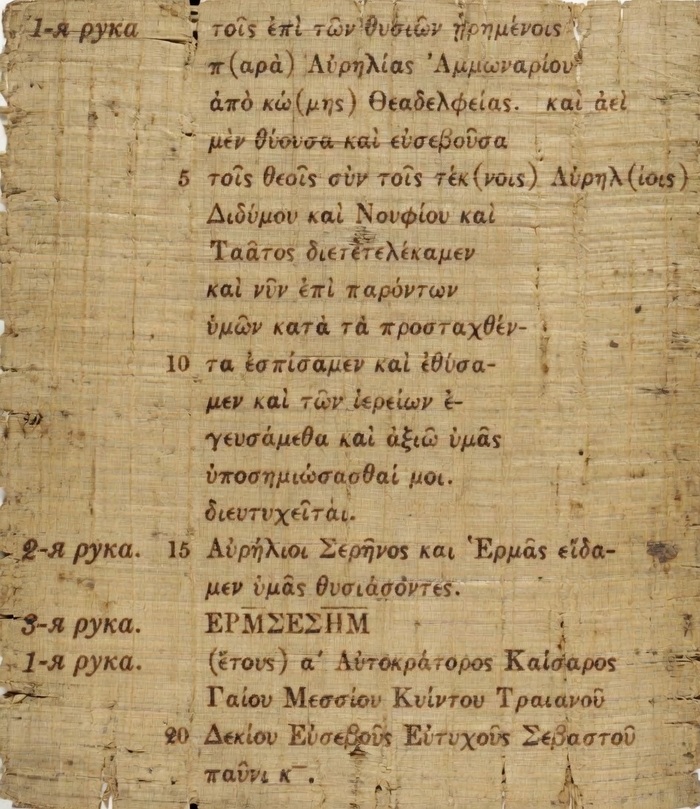 1-я рука τοῖς ἐπὶ τῶν θυσιῶν ᾑρημένοις
π(αρὰ) Αὐρηλίας Ἀμμωναρίου
ἀπὸ κώ(μης) Θεαδελφείας. καὶ ἀεὶ
μὲν θύουσα καὶ εὐσεβοῦσα
5 τοῖς θεοῖς σὺν τοῖς τέκ(νοις) Αὐρηλ(ίοις)
Διδύμου καὶ Νουφίου καὶ
Ταᾶτος διετετελέκαμεν
καὶ νῦν ἐπὶ παρόντων
ὑμῶν κατὰ τὰ προσταχθέν-
10 τα ἐσπίσαμεν καὶ ἐθύσα-
μεν καὶ τῶν ἱερείων ἐ-
γευσάμεθα καὶ ἀξιῶ ὑμᾶς
ὑποσημιώσασθαί μοι.
διευτυχεῖται.
2-я рука. 15 Αὐρήλιοι Σερῆνος και Ἑρμᾶς εἴδα-
μεν ὑμᾶς θυσιάσοντες.
3-я рука. ΕΡΜΣΕΣΗΜ
1-я рука. (ἔτους) α΄ Αὐτοκράτορος Καίσαρος
Γαίου Μεσσίου Κυίντου Τραιανοῦ
20 Δεκίου Εὐσεβοῦς Εὐτυχοῦς Σεβαστοῦ
παῦνι κ‾.